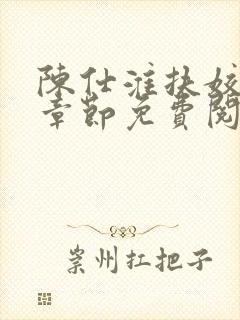 陳仕淮扶姣
章節免費閱
崇州扛把子